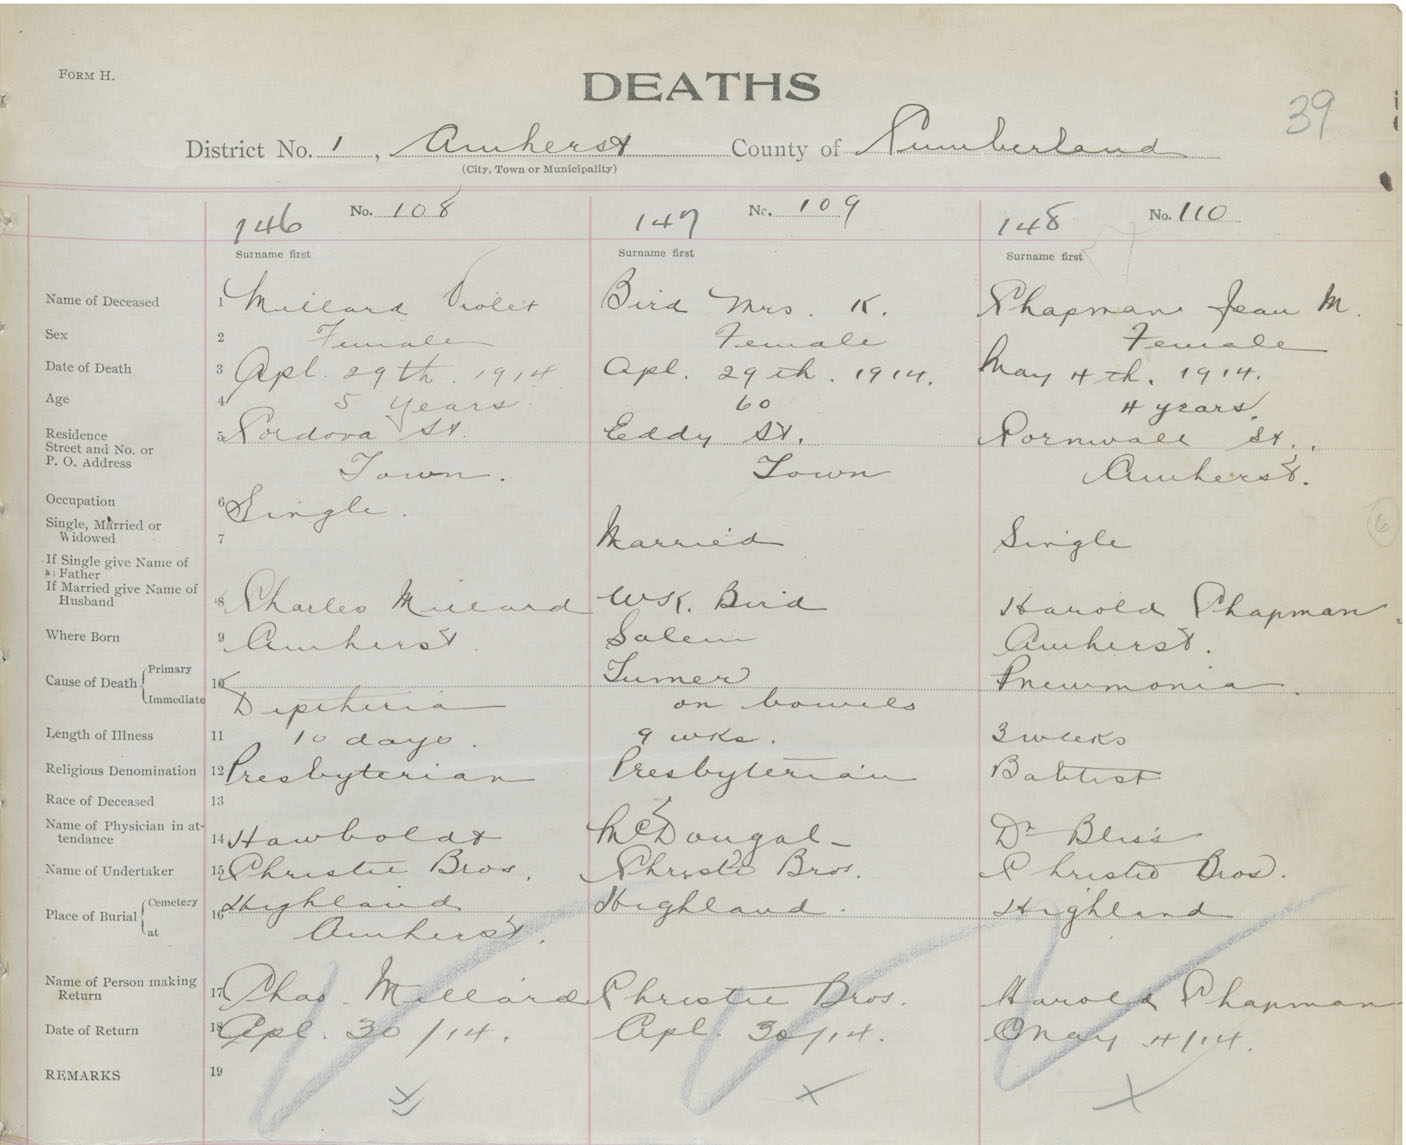 FORM H.
DEATHS
39
District No. 1, Amherst County of Cumberland
(City, Town or Municipality)
146 No. 108 147 No. 109 148 No. 110
Surname first Surname first Surname first
Name of Deceased 1 Millard Violet Bird Mrs. K. Chapman Jean M.
Sex 2 Female Female Female
Date of Death 3 Apl. 29th. 1914 Apl. 29th. 1914. May 4th. 1914.
Age 4 5 years 60 4 years.
Residence 5 Cordova St. Eddy St. Cornwall St.
Street and No. or
P. O. Address Town. Town Amherst.
Occupation 6 Single.
Single, Married or
Widowed 7 Married Single
6
If Single give Name of
Father
If Married give Name of
Husband 8 Charles Millard WK. Bird Harold Chapman
Where Born 9 Amherst. Salem Amherst.
Cause of Death Primary 10 Tumer Pneumonia.
Immediate Diptheria on bowels
Length of Illness 11 10 days. 9 wks. 3 weeks
Religious Denomination 12 Presbyterian Presbyterian Babtist
Race of Deceased 13
Name of Physician in at-
tendance 14 Hawboldt McDougal Dr Bliss
Name of Undertaker 15 Christie Bros. Christie Bros. Christie Bros.
Place of Burial Cemetery 16 Highland Highland. Highland
at Amherst.
Name of Person making
Return 17 Chas. Millard Christie Bros. Harold Chapman
Date of Return 18 Apl. 30/14. Apl. 30/14. May 4/14.
REMARKS 19